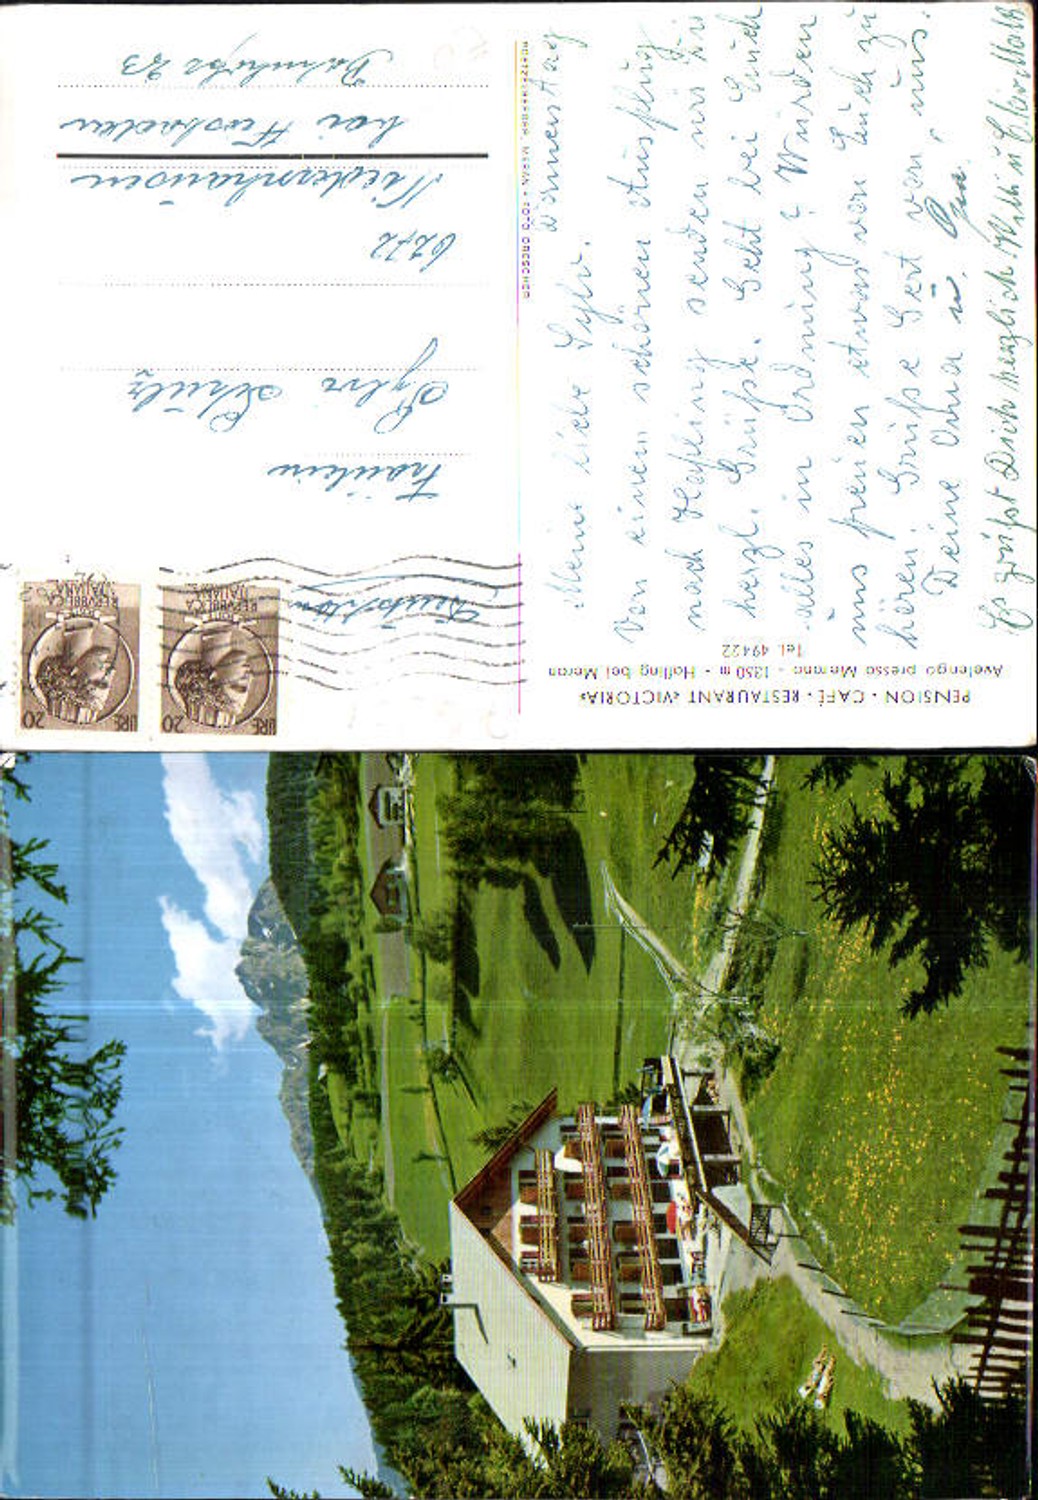 PENSION - CAFÉ - RESTAURANT «VICTORIA»
Avelengo presso Merano - 1350 m - Hafling bei Meran
Tel. 49422
Donnerstag
Meine liebe Sylv.
Von einem schönen Ausflug
nach Hafling senden wir Dir
herzl. Grüße. Geht bei Euch
alles in Ordnung? Würden
uns freuen etwas von Euch zu
hören. Grüße Gert von uns.
Deine Oma u. Opa.
Es grüßt Dich herzlich Willi u.
FOTO DRESCHER
LIRE 20
REPVBBLICA
ITALIANA
LIRE 20
REPVBBLICA
ITALIANA
Fräulein
Sylvia Schulz
6272
Niedernhausen
bei Wiesbaden
Bahnhofstr. 23